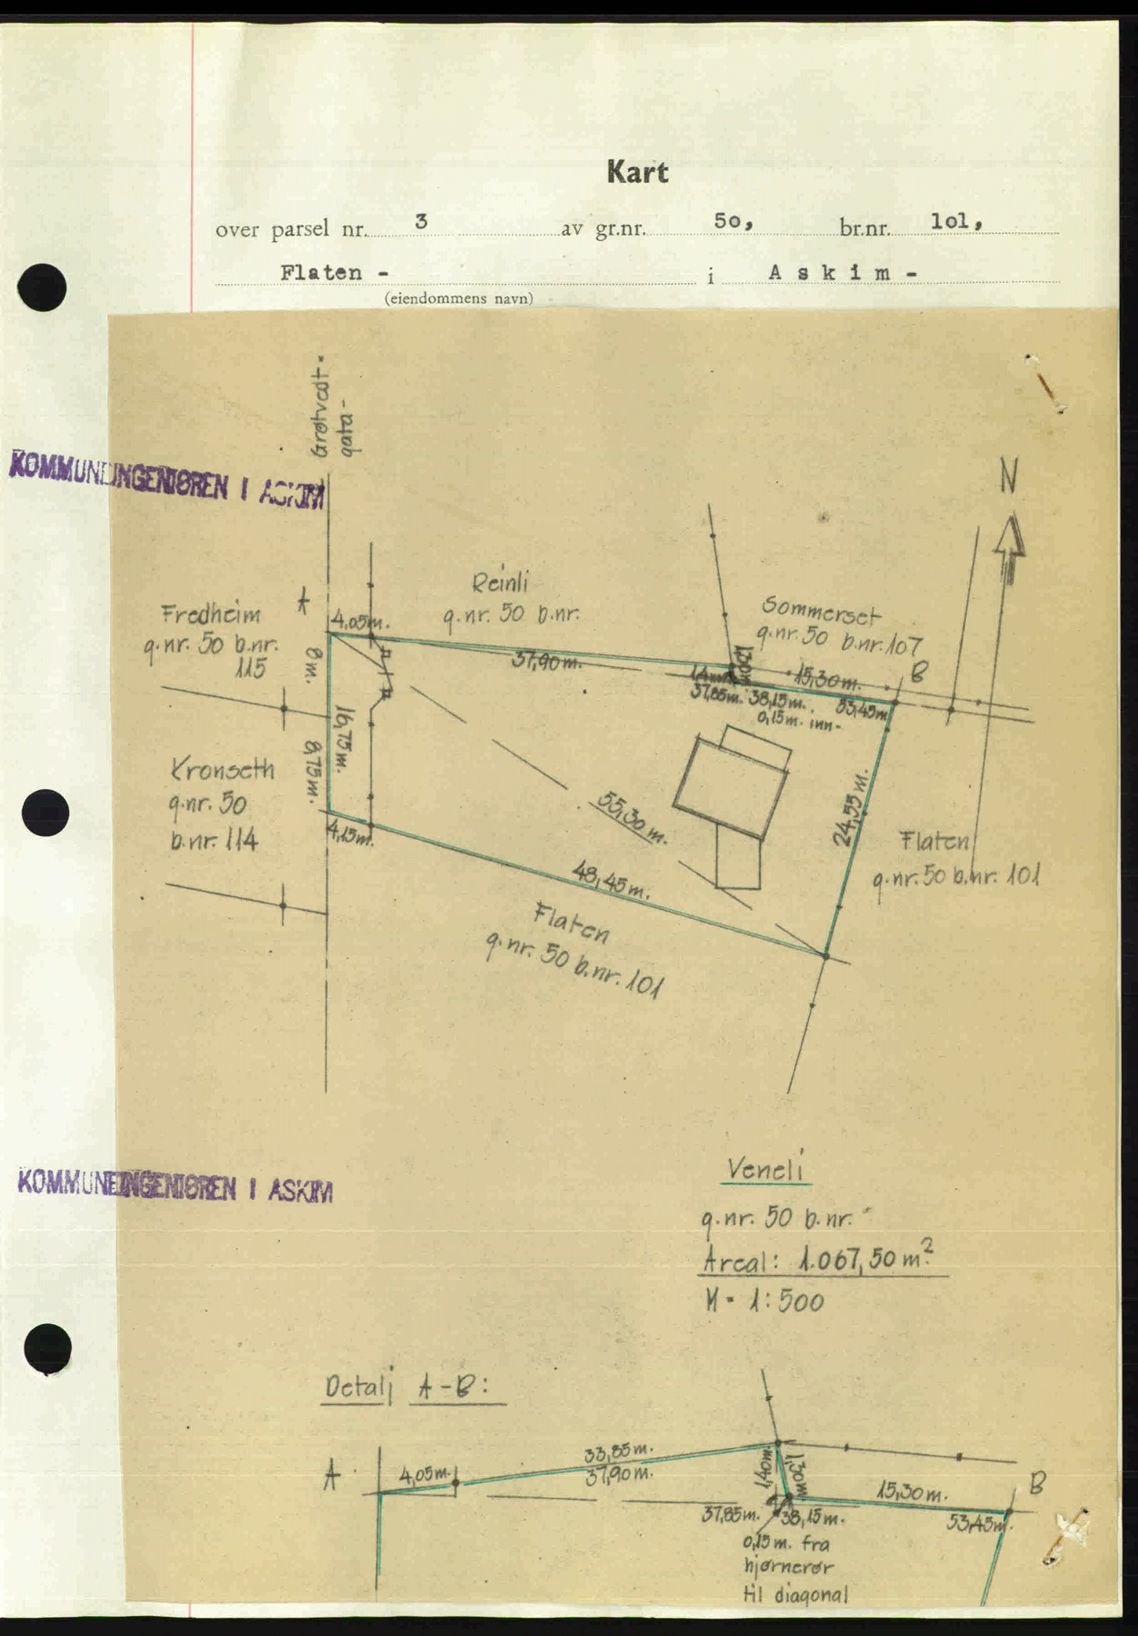 Kart
over parsel nr. 3 av gr.nr. 50, br.nr. 101,
Flaten - i Askim -
(eiendommens navn)
Grøtvedt-
gata-
KOMMUNEINGENIØREN I ASKIM
N
A
Reinli
g.nr. 50 b.nr.
Fredheim
g.nr. 50 b.nr.
115
Sommerset
g.nr. 50 b.nr. 107
B
4,05m.
37,90m.
1,30m
1,4
15,30m.
37,85m. 38,15m. 53,45m
0,15m. inn-
8m.
16,75m.
8,75m.
Kronseth
g.nr. 50
b.nr. 114
4,15m.
55,30m.
24,55m.
48,45m.
Flaten
g.nr. 50 b.nr. 101
Flaten
g.nr. 50 b.nr. 101
KOMMUNEINGENIØREN I ASKIM
Veneli
g.nr. 50 b.nr.
Areal: 1.067,50 m²
M = 1:500
Detalj A-B:
A
4,05m.
33,85m.
37,90m.
1,40m.
1,30m
15,30m.
B
37,85m. 38,15m. 53,45m.
0,15m. fra
hjørnerør
til diagonal